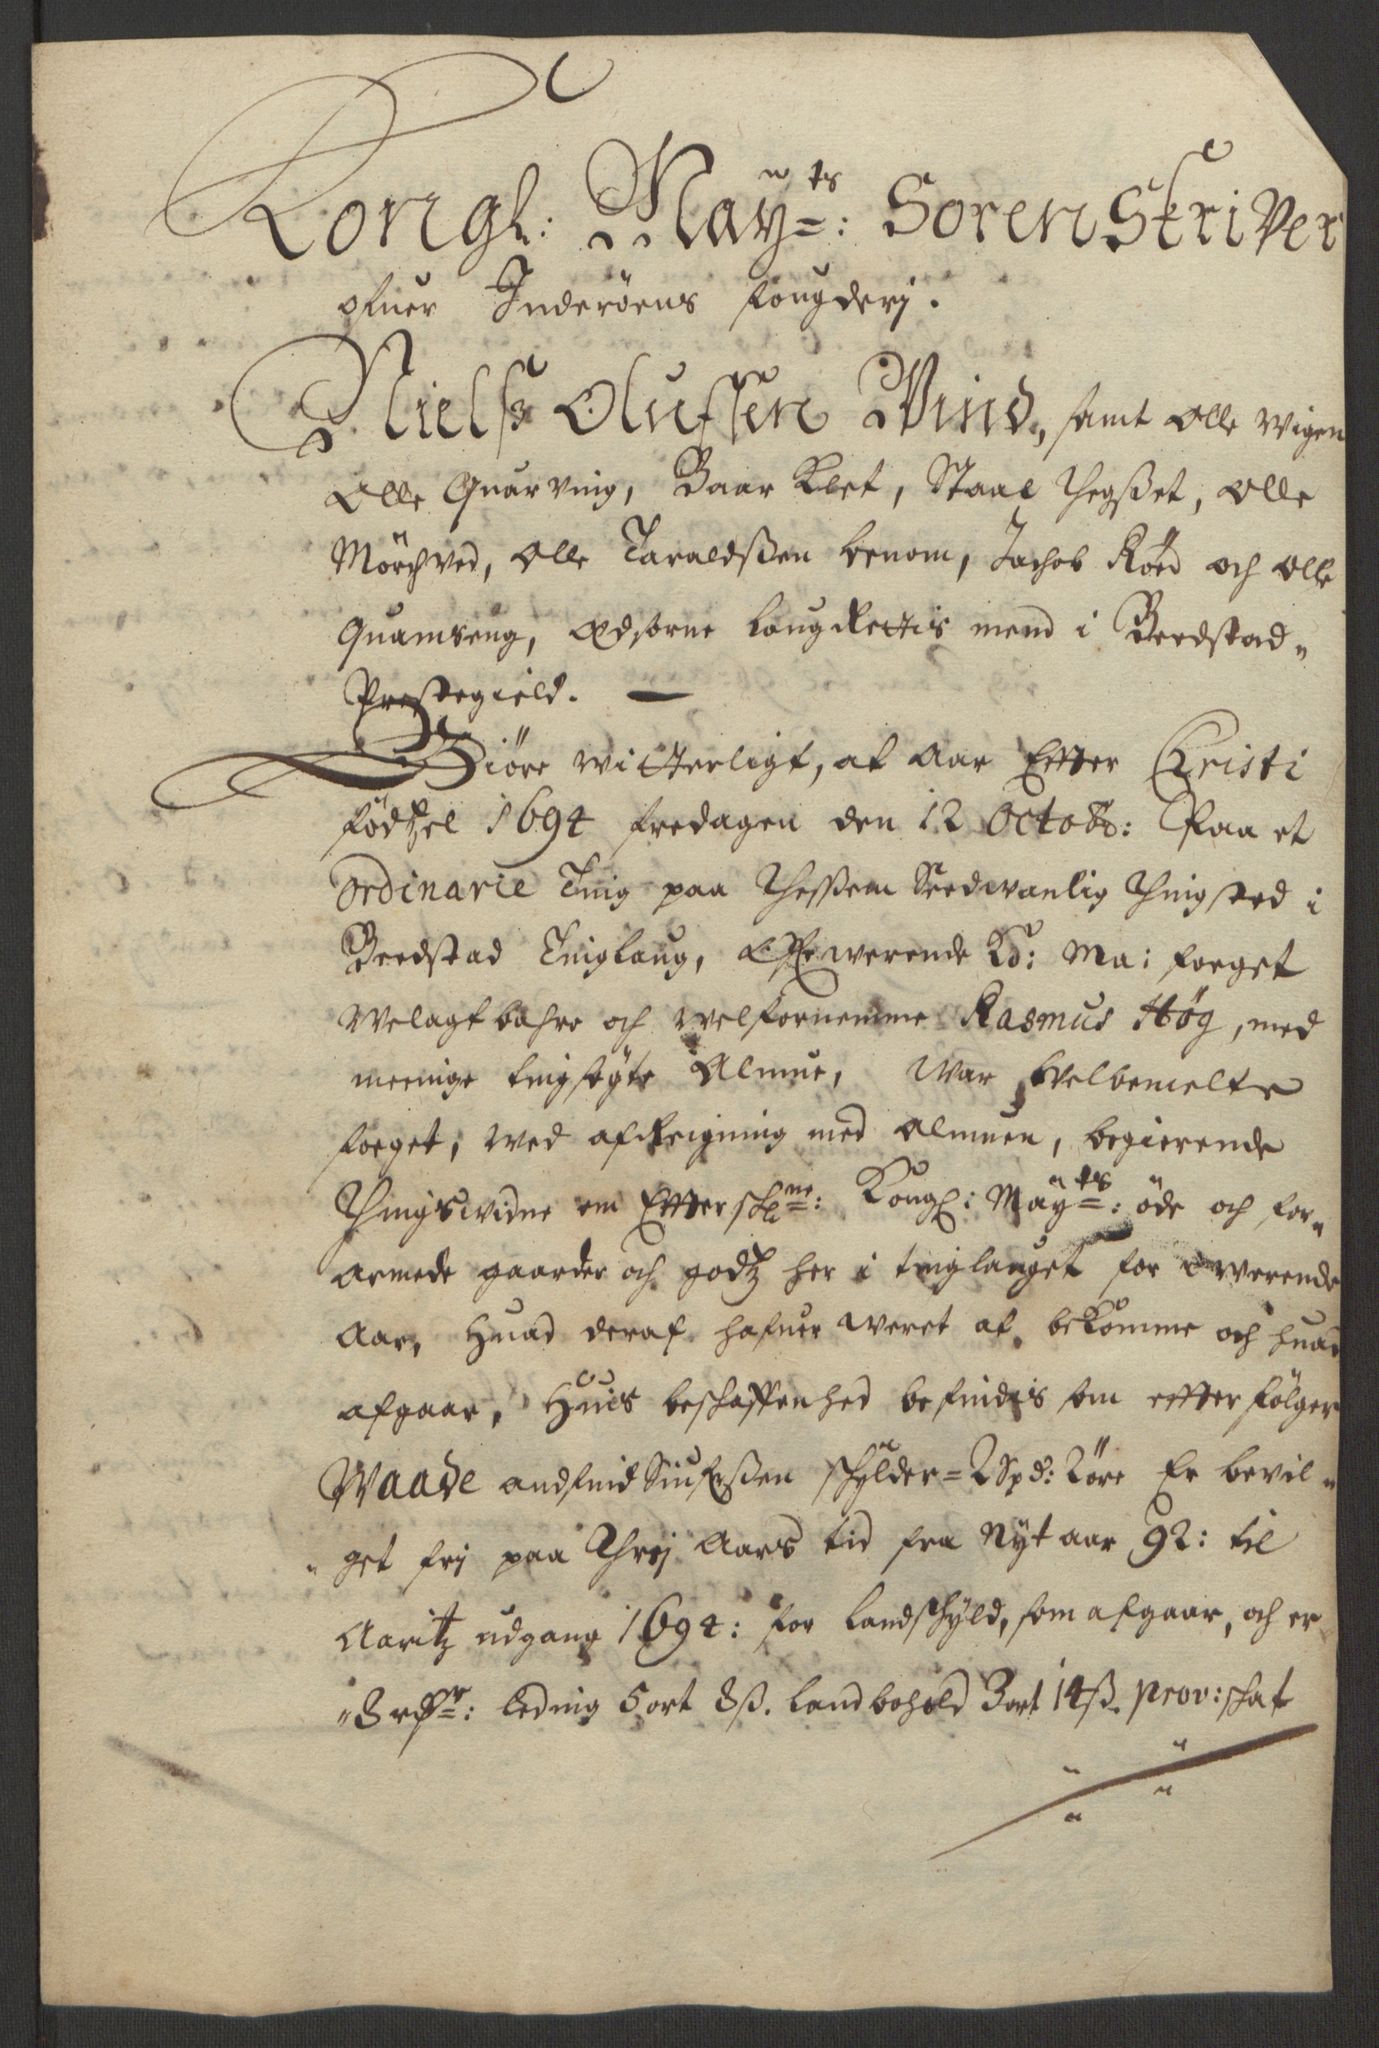 Kongl: Mayts: Sorenskriver
ofuer Inderöens fougderj.
Nielß Olufsen Wind, samt Olle Wigen
Olle Quarving, Baar Klet, Staal Thegßet, Olle
Mörchved, Olle Taraldßen benom, Jachob Röed och Olle
Quamseng, Edsorne Laug Rettis mend i Beedstad
Prestegield.
Giöre witterligt, at Aar Efter Christi
födtzel 1694 fredagen den 12 Octobr: Paa et
Ordinarie Ting paa Theßem Sædwanlig Thingsted i
Beedstad Tinglaug, Offwerwerende Ko: Ma: foeget
Welagtbahre och Welfornemme Rasmus Hög, med
meenige tingsögte Almue, War Welbemelte
foeget, wed afkreigning med Almuen, begierende
Thingswidne om Efterschne: Kongl: Mayts: öde och for
armede gaarder och godtz her i tinglauget for nerwerende
Aar, Huad deraf hafuer weret at bekomme och huad
afgaar, Huis beschaffenhed befindis som efterfölger
Waade andfind Siurßen schylder = 2 Spd: 2 öre Er bevil
get frj paa Threj Aars tid fra Nyt aar 92: til
Aaritz udgang 1694: for Landschyld, som afgaar, och er
8 rdr: Leding 5 ort 8 ß. Landbohold 3 ort 14 ß. prov: schat